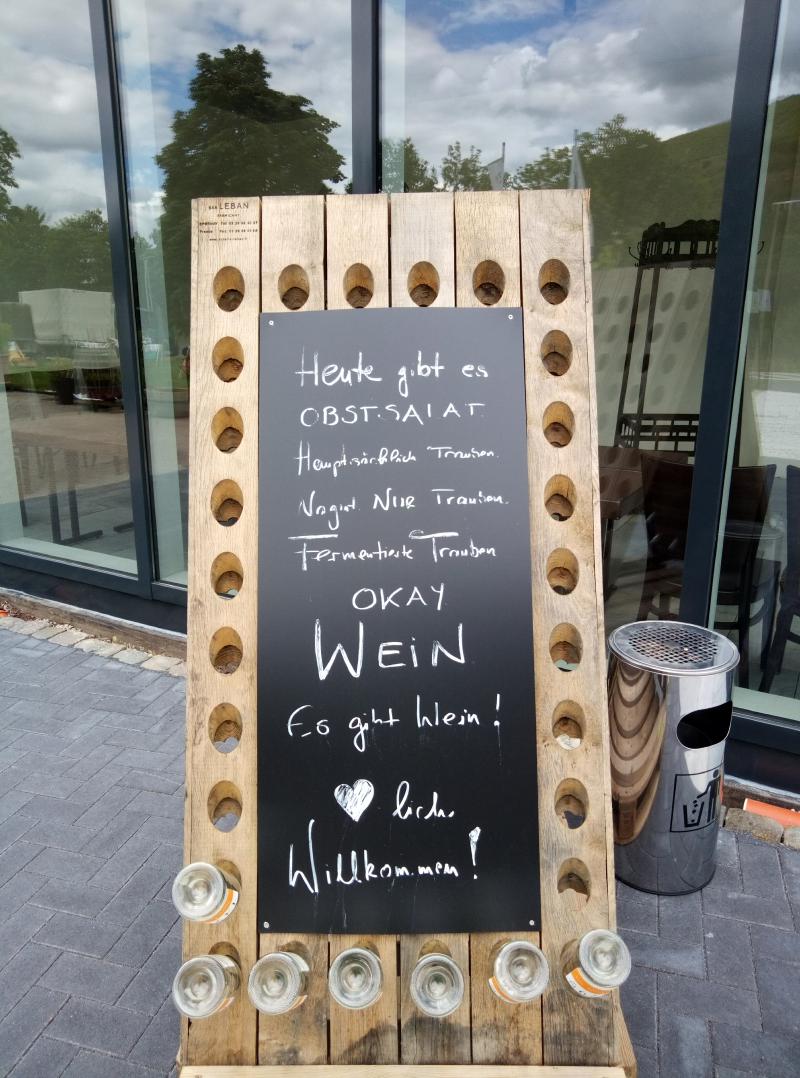 LEBAN
Heute gibt es
OBST.SALAT.
Hauptsächlich Trauben.
Nagut. NUR Trauben.
Fermentierte Trauben
OKAY
WEiN
Es gibt Wein!
♥lich.
Willkommen!